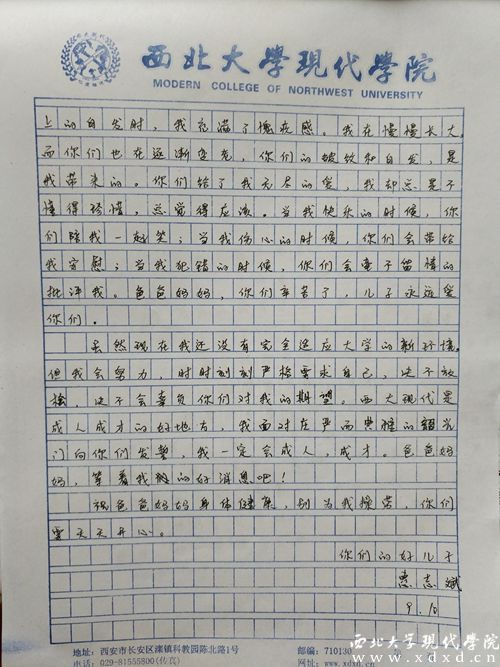 西北大學現代學院
MODERN COLLEGE OF NORTHWEST UNIVERSITY
上的白发时，我充满了愧疚感。我在慢慢长大，
而你们也在逐渐变老，你们的皱纹和白发，是
我带来的。你们给了我无尽的爱，我却总是不
懂得珍惜，总觉得应该。当我快乐的时候，你
们陪我一起笑；当我伤心的时候，你们会带给
我安慰；当我犯错的时候，你们会毫不留情的
批评我。爸爸妈妈，你们辛苦了，儿子永远爱
你们。
虽然现在我还没有完全适应大学的新环境，
但我会努力，时时刻刻严格要求自己，决不放
松，决不会辜负你们对我的期望。西大现代是
成人成才的好地方，我面对庄严而典雅的
门向你们发誓，我一定会成人，成才。爸爸妈
妈，等着我的好消息吧！
祝爸爸妈妈身体健康，别为我操劳，你们
要天天开心。
你们的好儿子
志斌
9.10
地址：西安市长安区滦镇科教园陈北路1号
电话：029-81555800(传真)
邮编：71013
网址：www.xdxd.cn
西北大学现代学院
www.xdxd.cn